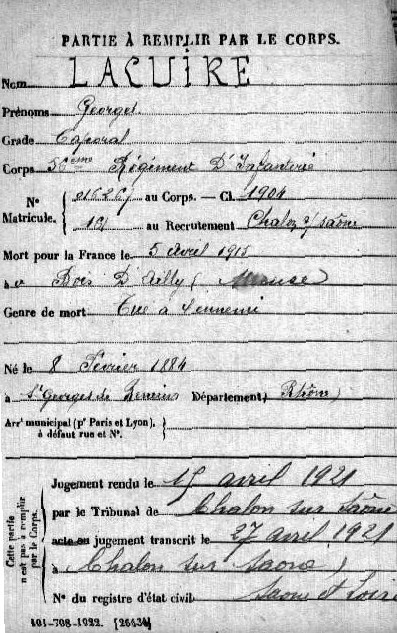 PARTIE À REMPLIR PAR LE CORPS.
Nom LACUIRE
Prénoms Georges
Grade Caporal
Corps 56ème Régiment D'Infanterie
N° Matricule. au Corps. — Cl. 1904
au Recutement Chalon s/ Saône
Mort pour la France le 5 Avril 1915
à Bois D'Ailly (Meuse)
Genre de mort Tué à l'ennemi
Né le 8 Février 1884
à St Georges de Reneins Département Rhône
Arrt municipal (pr Paris et Lyon),
à défaut rue et N°.
Cette partie n'est pas à remplir par le Corps.
Jugement rendu le 15 avril 1921
par le Tribunal de Chalon sur Saône
acte ou jugement transcrit le 27 avril 1921
à Chalon sur Saone
N° du registre d'état civil Saone et Loire
101-708-1922. [26434]